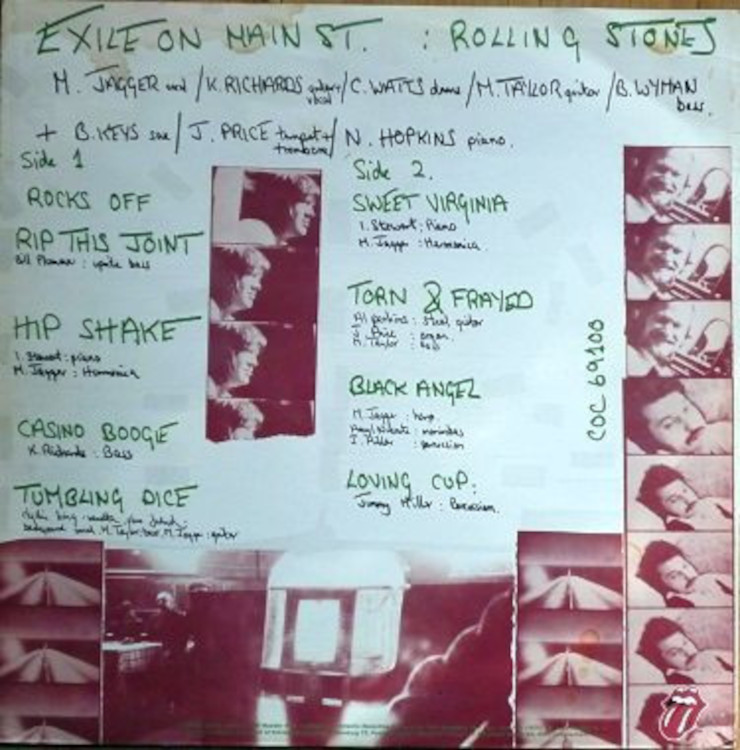 EXILE ON MAIN ST. : ROLLING STONES
M. JAGGER / K. RICHARDS guitar / C. WATTS drums / M. TAYLOR guitar / B. WYMAN
vocal bass.
+ B. KEYS sax / J. PRICE trumpet + / N. HOPKINS piano.
trombone
Side 1
ROCKS OFF
RIP THIS JOINT
Bill Plummer : bass
HIP SHAKE
I. Stewart : piano
M. Jagger : Harmonica
CASINO BOOGIE
K. Richards : Bass
TUMBLING DICE
M. Taylor : bass, M. Jagger : guitar
Side 2.
SWEET VIRGINIA
I. Stewart : Piano
M. Jagger : Harmonica
TORN & FRAYED
Al perkins : Steel guitar
J. Price : organ.
M. Taylor : bass
BLACK ANGEL
M. Jagger : harp
: marimbas
J. Miller : percussion
LOVING CUP :
Jimmy Miller : Percussion.
COC 69100